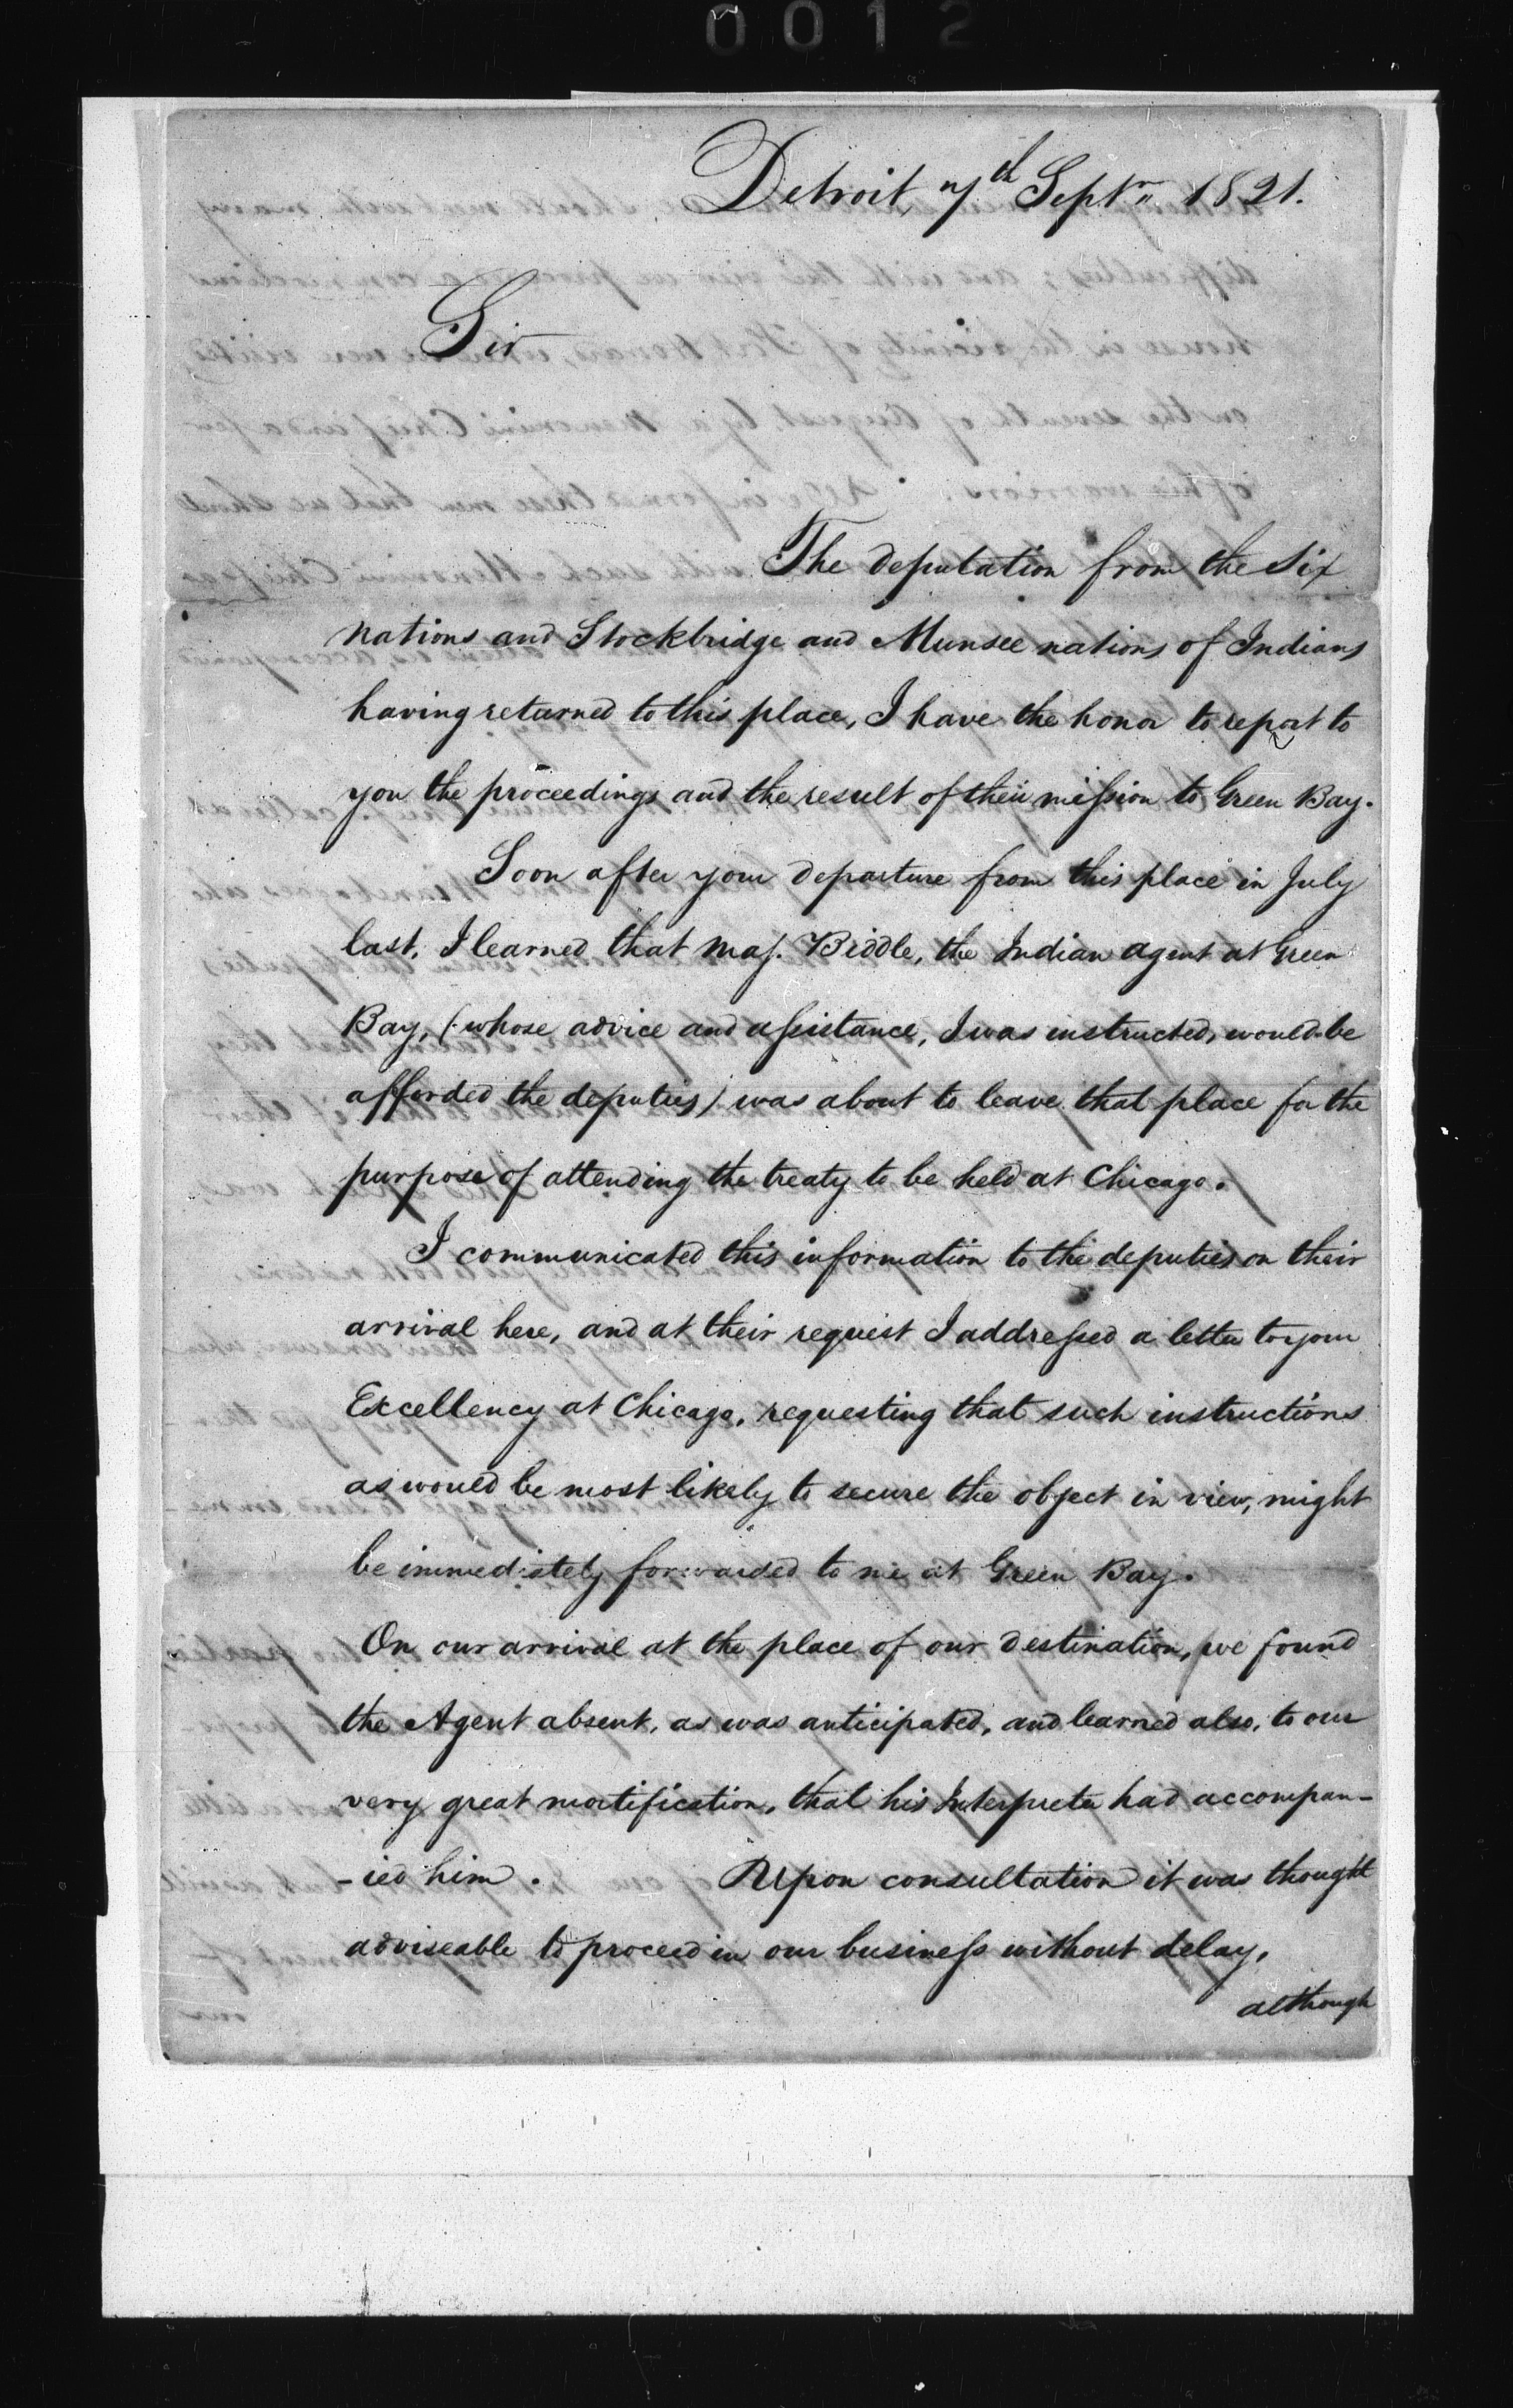 0012
Detroit, 7th Septr. 1821.
Sir
The deputation from the Six
nations and Stockbridge and Munsee nations of Indians
having returned to this place, I have the honor to report to
you the proceedings and the result of their mission to Green Bay.
Soon after your departure from this place in July
last, I learned that Maj. Biddle, the Indian agent at Green
Bay, (whose advice and assistance, I was instructed, would be
afforded the deputies) was about to leave that place for the
purpose of attending the treaty to be held at Chicago.
I communicated this information to the deputies on their
arrival here, and at their request I addressed a letter to your
Excellency at Chicago, requesting that such instructions
as would be most likely to secure the object in view, might
be immediately forwarded to me at Green Bay.
On our arrival at the place of our destination, we found
the Agent absent, as was anticipated, and learned also, to our
very great mortification, that his Interpreter had accompan-
-ied him. Upon consultation it was thought
adviseable to proceed in our business without delay,
although